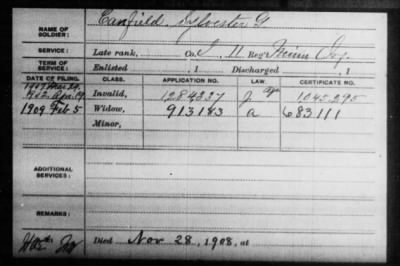 NAME OF SOLDIER: Canfield, Sylvester G
SERVICE: Late rank, Co. I, 11 Reg't Minn Inf.
TERM OF SERVICE: Enlisted , 1 Discharged , 1
DATE OF FILING. CLASS. APPLICATION NO. LAW CERTIFICATE NO.
Invalid, 1284337 1045295
1909 Feb 5 Widow, 913183 a 683111
Minor,
ADDITIONAL SERVICES:
REMARKS:
Died Nov 28, 1908, at